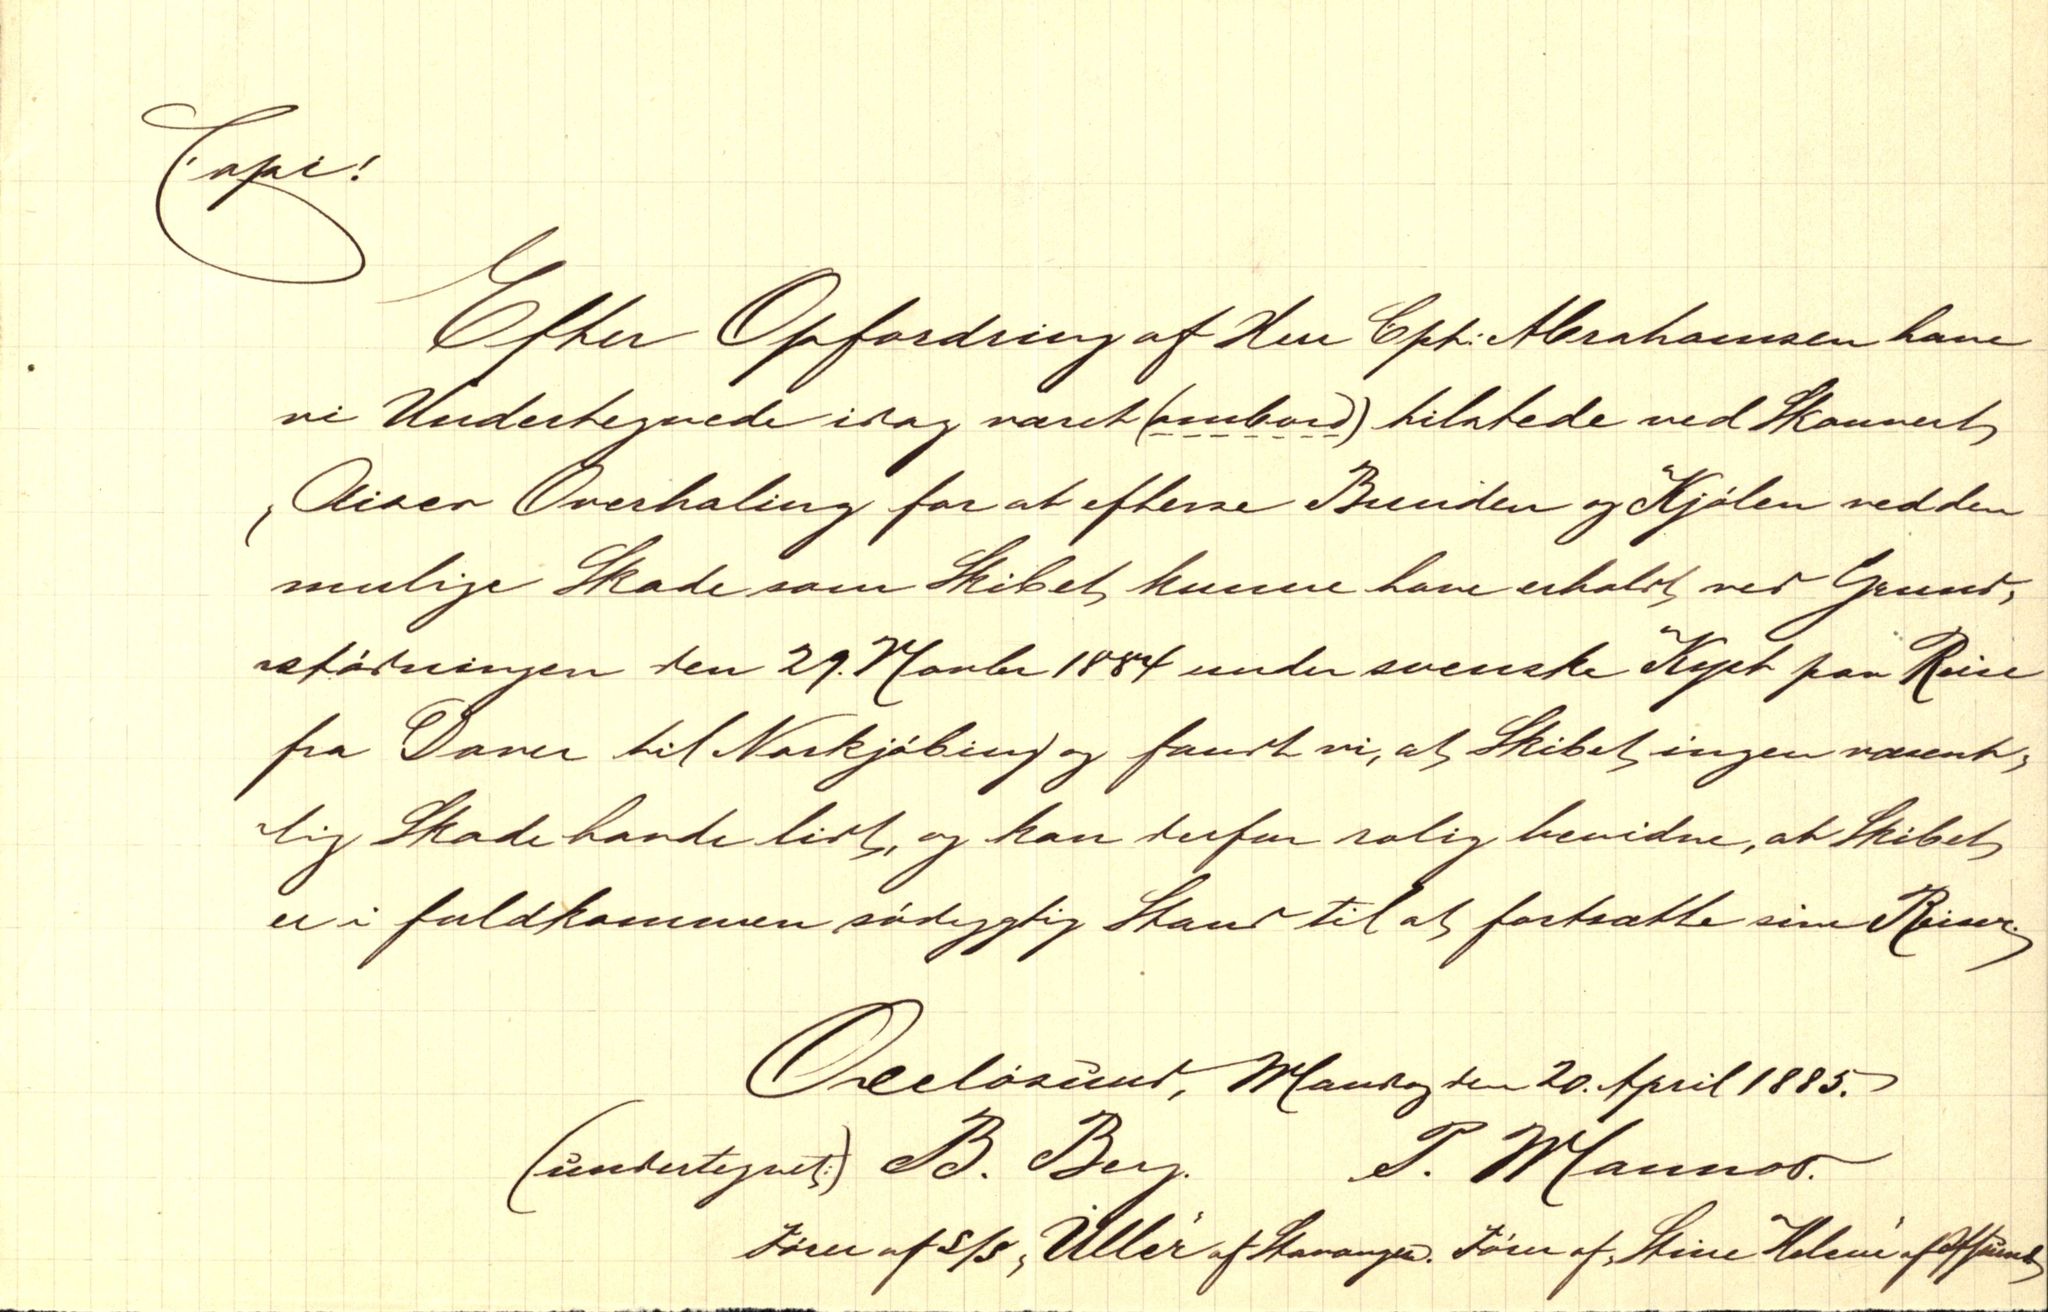 Copi!
Efter Opfordring af Herr Cpt: Abrahamsen have
vi Undertegnede idag været (ombord) tilstede ved Skonnert
„ Overhaling for at efterse Bunden og Kjölen ved den
mulige Skade som Skibet kunne have erholdt ved Grund„
stödningen den 29. Novbr 1884 under svenske Kyst paa Reise
fra Dover til Norkjöbing og fandt vi, at Skibet ingen væsent„
lig Skade havde lidt, og kan derfor rolig bevidne, at Skibet
er i fuldkommen södygtig Stand til at fortsætte sine Reiser.
Oxelösund, Mandag den 20. April 1885.
(undertegnet:) B. Berg. P. Mannos.
Förer af S/S „Uller" af Stavanger. Förer af „Stine Helene" af